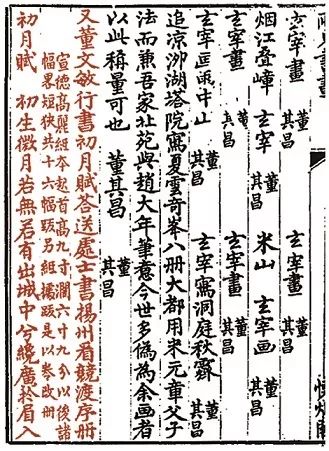 玄宰畫 董其昌 玄宰畫 董其昌
烟江疊嶂 玄宰 董其昌 米山 玄宰画 董其昌
玄宰畫 董其昌 玄宰畫 董其昌
玄宰 董其昌 玄宰寫洞庭秋霽 董其昌
追凉泖湖塔院寫夏雲奇峯八册大都用米元章父子
法而兼吾家北苑與趙大年筆意今世多偽為余画者
以此稱量可也 董其昌 董其昌
又董文敏行書初月賦荅送處士書揚州看競渡序册
宣德高麗經本 首高九寸濶六寸九分以後諸
幅畧短狹共十六幅跋另紙 跋是以 册
初月賦 初生微月若無若有出城中兮繞廣於眉入